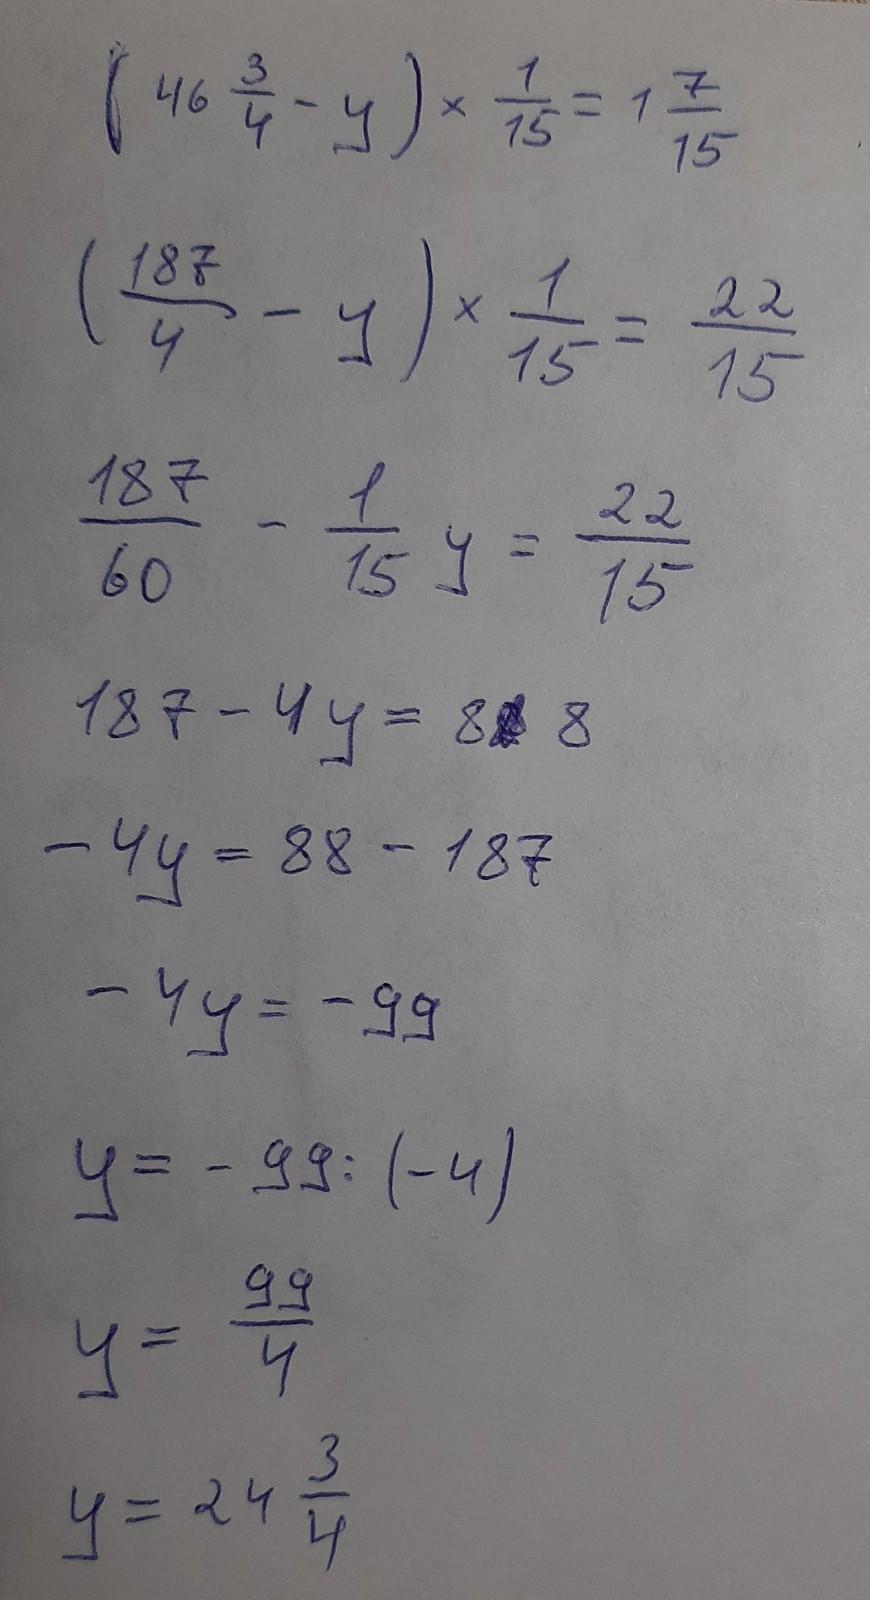 (46 3/4 - y) × 1/15 = 1 7/15
(187/4 - y) × 1/15 = 22/15
187/60 - 1/15 y = 22/15
187 - 4y = 88
-4y = 88 - 187
-4y = -99
y = -99 : (-4)
y = 99/4
y = 24 3/4